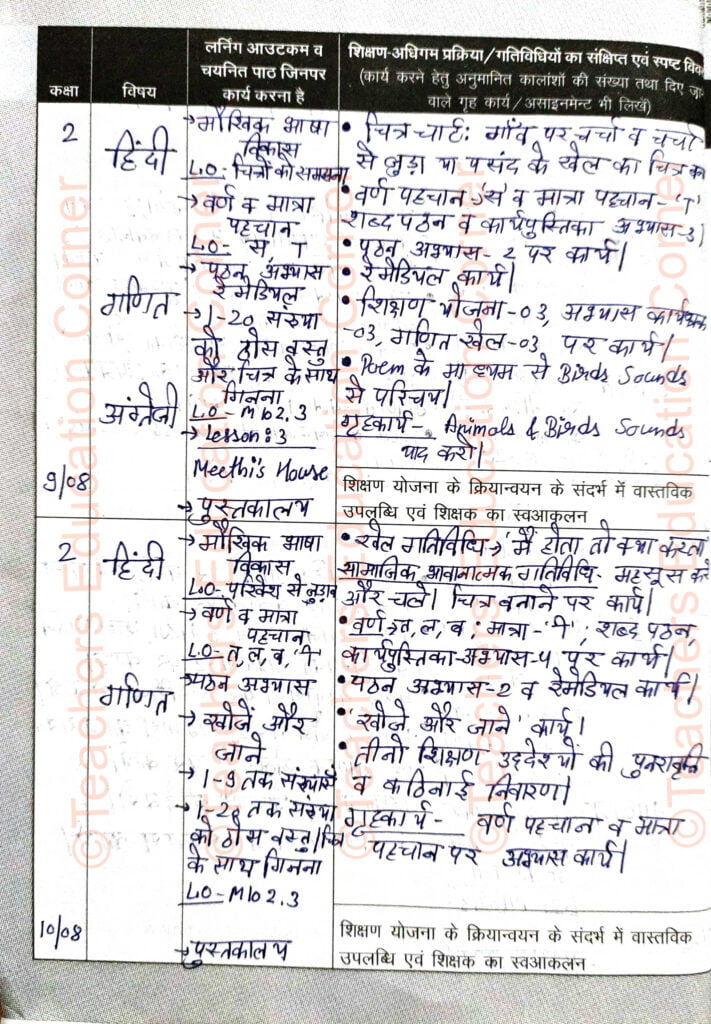 कक्षा
विषय
लर्निंग आउटकम व
चयनित पाठ जिनपर
कार्य करना है
शिक्षण-अधिगम प्रक्रिया/गतिविधियों का संक्षिप्त एवं स्पष्ट
(कार्य करने हेतु अनुमानित कालांशों की संख्या तथा दिए
वाले गृह कार्य / असाइनमेन्ट भी लिखें)
2
हिंदी
→ मौखिक भाषा
विकास
L.O- चित्रों को समझना
→ वर्ण व मात्रा
पहचान
L.O- स, ा
→ पठन अभ्यास
रेमेडियल
गणित
→ 1-20 संख्या
को ठोस वस्तु
और चित्र के साथ
गिनना
L.O- M102.3
अंग्रेजी
→ Lesson:3
Meethi's House
→ पुस्तकालय
9/08
• चित्र चार्ट: गाँव पर चर्चा व चर्चा
से जुड़ा या पसंद के खेल का चित्र
• वर्ण पहचान-'स' व मात्रा पहचान-'ा'
शब्द पठन व कार्यपुस्तिका अभ्यास-3।
• पठन अभ्यास-2 पर कार्य।
• रेमेडियल कार्य।
• शिक्षण योजना-03, अभ्यास कार्यपत्रक
-03, गणित खेल-03 पर कार्य।
• Poem के माध्यम से Birds Sounds
से परिचय।
गृहकार्य- Animals & Birds Sounds
याद करो।
शिक्षण योजना के क्रियान्वयन के संदर्भ में वास्तविक
उपलब्धि एवं शिक्षक का स्वआकलन
2
हिंदी
→ मौखिक भाषा
विकास
L.O- परिवेश से जुड़ाव
→ वर्ण व मात्रा
पहचान
L.O- त, ल, व, 'ी'
→ पठन अभ्यास
गणित
→ खोजें और
जाने
→ 1-9 तक संख्याएं
→ 1-20 तक संख्या
को ठोस वस्तु/चित्र
के साथ गिनना
L.O- M102.3
→ पुस्तकालय
10/08
• खेल गतिविधि → 'मैं होता तो क्या करता
सामाजिक भावानात्मक गतिविधि- महसूस करें
और चलें। चित्र बनाने पर कार्य।
• वर्ण → त, ल, व; मात्रा-'ी', शब्द पठन,
कार्यपुस्तिका-अभ्यास-4 पर कार्य।
• पठन अभ्यास-2 व रेमेडियल कार्य।
• 'खोजे और जाने' कार्य।
• तीनो शिक्षण उद्देश्यों की पुनरावृत्ति
व कठिनाई निवारण।
गृहकार्य- वर्ण पहचान व मात्रा
पहचान पर अभ्यास कार्य।
शिक्षण योजना के क्रियान्वयन के संदर्भ में वास्तविक
उपलब्धि एवं शिक्षक का स्वआकलन
©Teachers Education Corner
©Teachers Education Corner
©Teachers Education Corner
©Teachers Education Corner